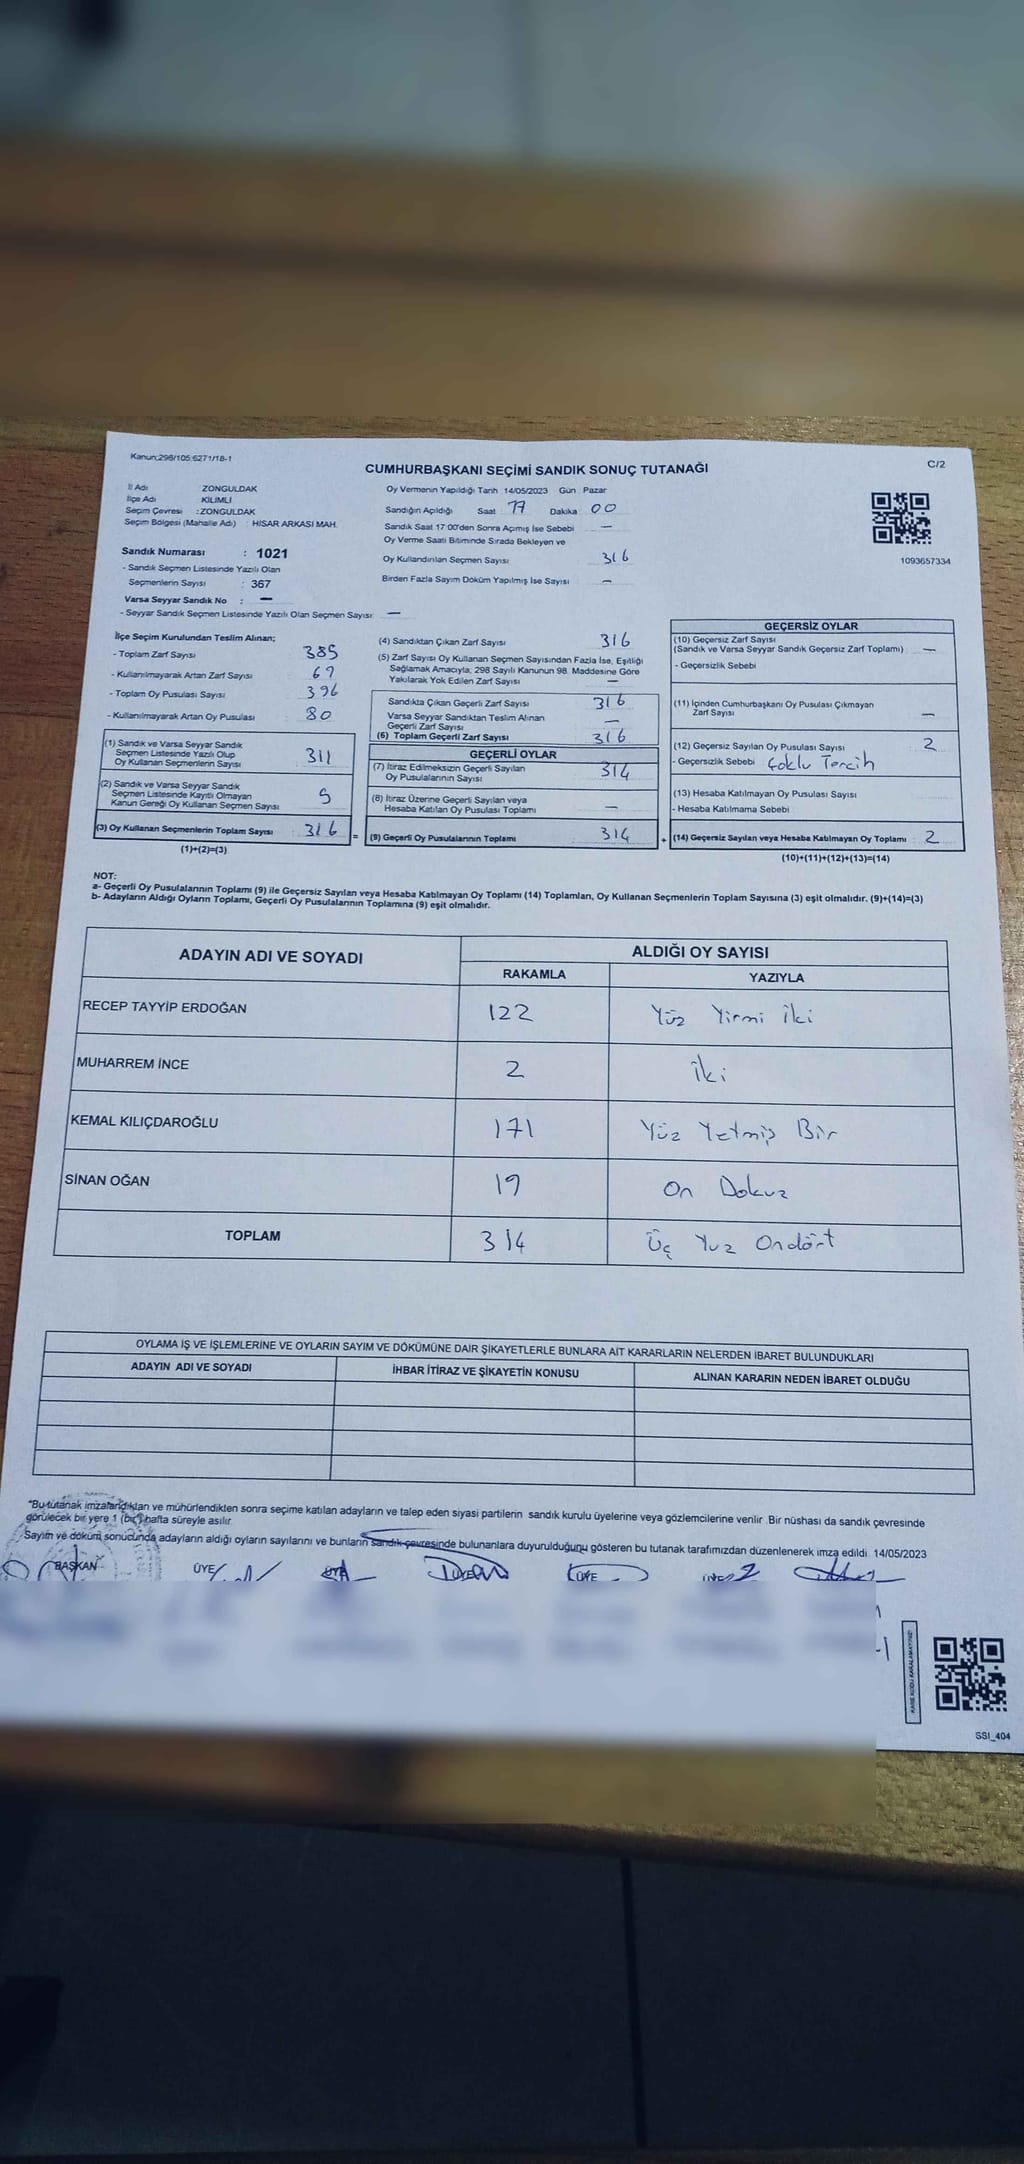 Kanun;298/105;6271/18-1
CUMHURBAŞKANI SEÇİMİ SANDIK SONUÇ TUTANAĞI
C/2
İl Adı ZONGULDAK
İlçe Adı KİLİMLİ
Seçim Çevresi :ZONGULDAK
Seçim Bölgesi (Mahalle Adı) : HİSAR ARKASI MAH.
Oy Vermenin Yapıldığı Tarih 14/05/2023 Gün Pazar
Sandığın Açıldığı Saat 17 Dakika 00
Sandık Saat 17:00'den Sonra Açımış İse Sebebi —
Oy Verme Saati Bitiminde Sırada Bekleyen ve
Oy Kullandırılan Seçmen Sayısı 316
Birden Fazla Sayım Döküm Yapılmış İse Sayısı —
1093657334
Sandık Numarası : 1021
- Sandık Seçmen Listesinde Yazılı Olan
Seçmenlerin Sayısı : 367
Varsa Seyyar Sandık No : —
- Seyyar Sandık Seçmen Listesinde Yazılı Olan Seçmen Sayısı: —
İlçe Seçim Kurulundan Teslim Alınan;
- Toplam Zarf Sayısı 385
- Kullanılmayarak Artan Zarf Sayısı 69
- Toplam Oy Pusulası Sayısı 396
- Kullanılmayarak Artan Oy Pusulası 80
(1) Sandık ve Varsa Seyyar Sandık
Seçmen Listesinde Yazılı Olup
Oy Kullanan Seçmenlerin Sayısı 311
(2) Sandık ve Varsa Seyyar Sandık
Seçmen Listesinde Kayıtlı Olmayan
Kanun Gereği Oy Kullanan Seçmen Sayısı 5
(3) Oy Kullanan Seçmenlerin Toplam Sayısı 316
(1)+(2)=(3)
(4) Sandıktan Çıkan Zarf Sayısı 316
(5) Zarf Sayısı Oy Kullanan Seçmen Sayısından Fazla İse, Eşitliği
Sağlamak Amacıyla, 298 Sayılı Kanunun 98. Maddesine Göre
Yakılarak Yok Edilen Zarf Sayısı —
Sandıkta Çıkan Geçerli Zarf Sayısı 316
Varsa Seyyar Sandıktan Teslim Alınan
Geçerli Zarf Sayısı —
(6) Toplam Geçerli Zarf Sayısı 316
GEÇERLİ OYLAR
(7) İtiraz Edilmeksizin Geçerli Sayılan
Oy Pusulalarının Sayısı 314
(8) İtiraz Üzerine Geçerli Sayılan veya
Hesaba Katılan Oy Pusulası Toplamı —
= (9) Geçerli Oy Pusulalarının Toplamı 314
GEÇERSİZ OYLAR
(10) Geçersiz Zarf Sayısı
(Sandık ve Varsa Seyyar Sandık Geçersiz Zarf Toplamı) —
- Geçersizlik Sebebi
(11) İçinden Cumhurbaşkanı Oy Pusulası Çıkmayan
Zarf Sayısı —
(12) Geçersiz Sayılan Oy Pusulası Sayısı 2
- Geçersizlik Sebebi Çoklu Tercih
(13) Hesaba Katılmayan Oy Pusulası Sayısı
- Hesaba Katılmama Sebebi
+ (14) Geçersiz Sayılan veya Hesaba Katılmayan Oy Toplamı 2
(10)+(11)+(12)+(13)=(14)
NOT:
a- Geçerli Oy Pusulalarının Toplamı (9) ile Geçersiz Sayılan veya Hesaba Katılmayan Oy Toplamı (14) Toplamları, Oy Kullanan Seçmenlerin Toplam Sayısına (3) eşit olmalıdır. (9)+(14)=(3)
b- Adayların Aldığı Oyların Toplamı, Geçerli Oy Pusulalarının Toplamına (9) eşit olmalıdır.
ADAYIN ADI VE SOYADI ALDIĞI OY SAYISI
RAKAMLA YAZIYLA
RECEP TAYYİP ERDOĞAN 122 Yüz Yirmi İki
MUHARREM İNCE 2 İki
KEMAL KILIÇDAROĞLU 171 Yüz Yetmiş Bir
SİNAN OĞAN 19 On Dokuz
TOPLAM 314 Üç Yuz Ondört
OYLAMA İŞ VE İŞLEMLERİNE VE OYLARIN SAYIM VE DÖKÜMÜNE DAİR ŞİKAYETLERLE BUNLARA AİT KARARLARIN NELERDEN İBARET BULUNDUKLARI
ADAYIN ADI VE SOYADI İHBAR İTİRAZ VE ŞİKAYETİN KONUSU ALINAN KARARIN NEDEN İBARET OLDUĞU
*Bu tutanak imzalandıktan ve mühürlendikten sonra seçime katılan adayların ve talep eden siyasi partilerin sandık kurulu üyelerine veya gözlemcilerine verilir. Bir nüshası da sandık çevresinde
görülecek bir yere 1 (bir) hafta süreyle asılır.
Sayım ve döküm sonucunda adayların aldığı oyların sayılarını ve bunların sandık çevresinde bulunanlara duyurulduğunu gösteren bu tutanak tarafımızdan düzenlenerek imza edildi. 14/05/2023
BAŞKAN ÜYE ÜYE ÜYE ÜYE
KARE KODU KARALAMAYINIZ!
SSI_404